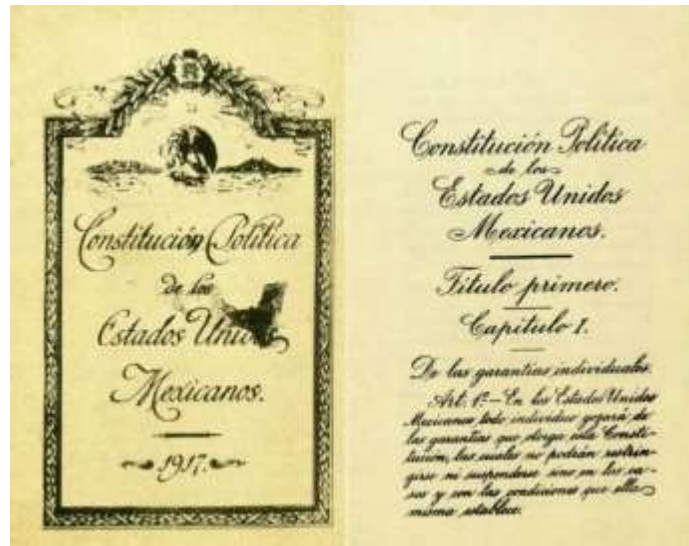 Constitución Política
de los
Estados Unidos
Mexicanos.
1917.
Constitución Política
de los
Estados Unidos
Mexicanos.
Título primero.
Capítulo I.
De las garantías individuales.
Art. 1º— En los Estados Unidos
Mexicanos todo individuo gozará de
las garantías que otorga esta Consti-
tución, las cuales no podrán restrin-
girse ni suspenderse sino en los ca-
sos y con las condiciones que ella
misma establece.